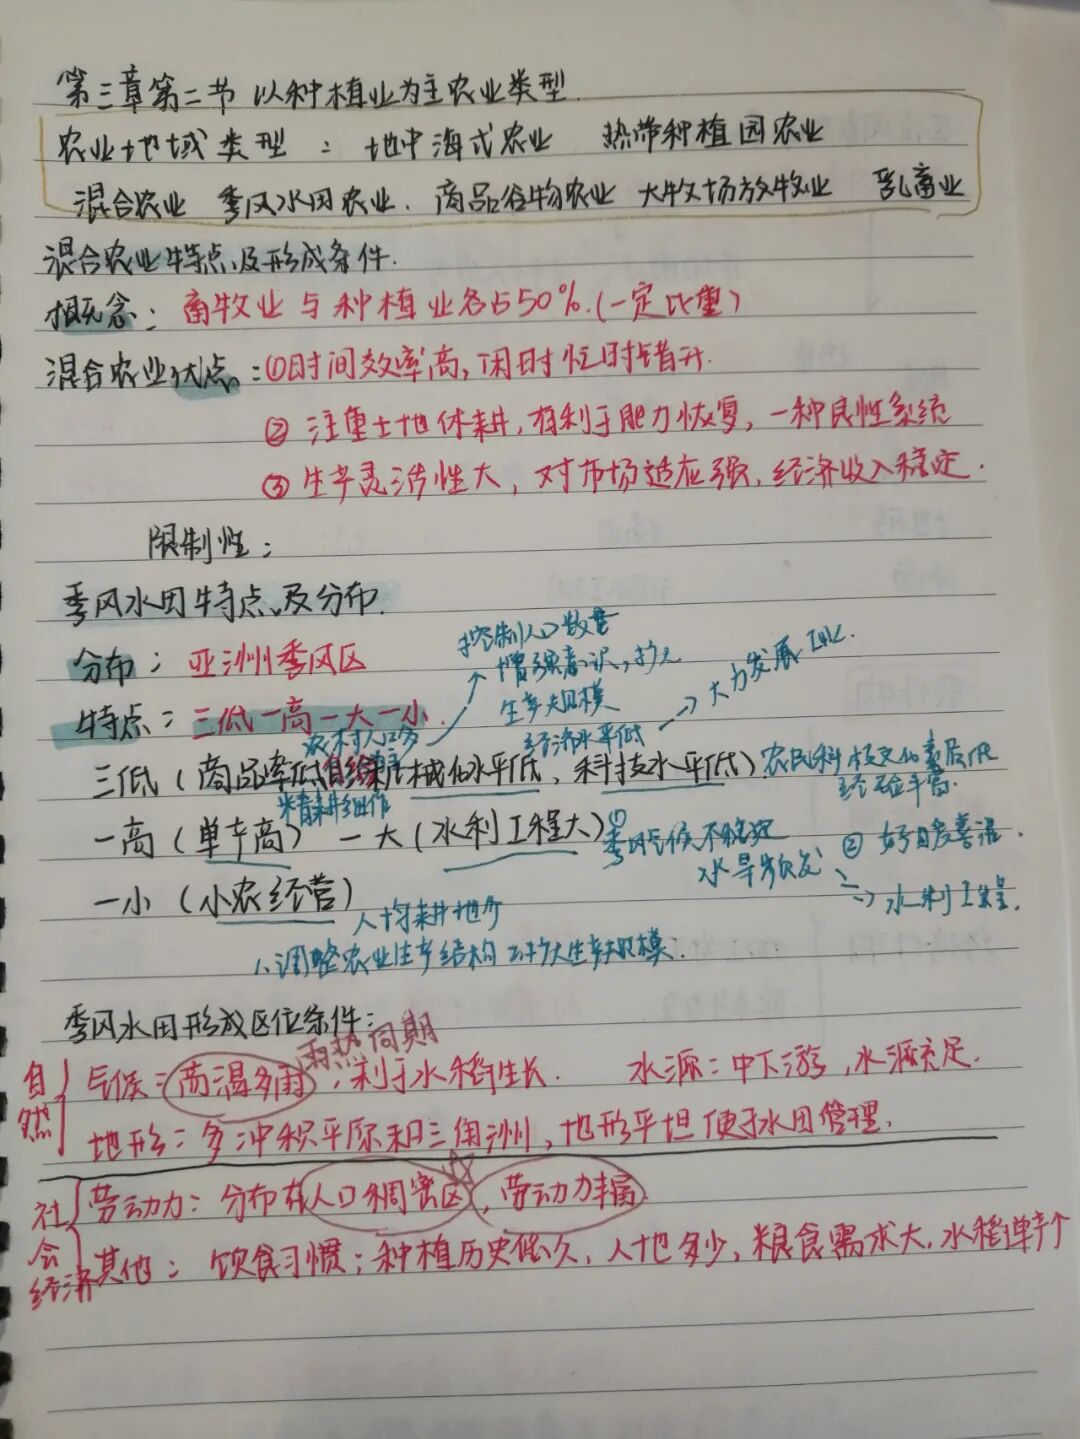 第三章第二节 以种植业为主农业类型.
农业地域类型：地中海式农业 热带种植园农业
混合农业 季风水田农业. 商品谷物农业 大牧场放牧业 乳畜业
混合农业特点及形成条件.
概念：畜牧业与种植业各占50%.(一定比重)
混合农业优点：①时间效率高,闲时忙时错开.
② 注重土地休耕,有利于肥力恢复,一种良性系统
③ 生产灵活性大,对市场适应强,经济收入稳定.
限制性：
季风水田特点及分布.
分布：亚洲季风区
控制人口数量
增强意识,扩大
生产规模
大力发展工业.
特点：三低一高一大一小.
农村人口多
经济水平低
三低（商品率低 机械化水平低、科技水平低）
农民科技文化素质低
经验丰富.
精耕细作
一高（单产高） 一大（水利工程大）
①季风气候不稳定
水旱频发
② 好自发善温.
→ 水利工程量.
一小（小农经营）
人均耕地少
1、调整农业生产结构 扩大生产规模.
季风水田形成区位条件：
雨热同期
自然
气候：高温多雨,利于水稻生长. 水源：中下游,水源充足.
地形：多冲积平原和三角洲,地形平坦便于水田管理.
社会经济
劳动力：分布在人口稠密区,劳动力丰富.
其他：饮食习惯；种植历史悠久,人地多少,粮食需求大.水稻单产个